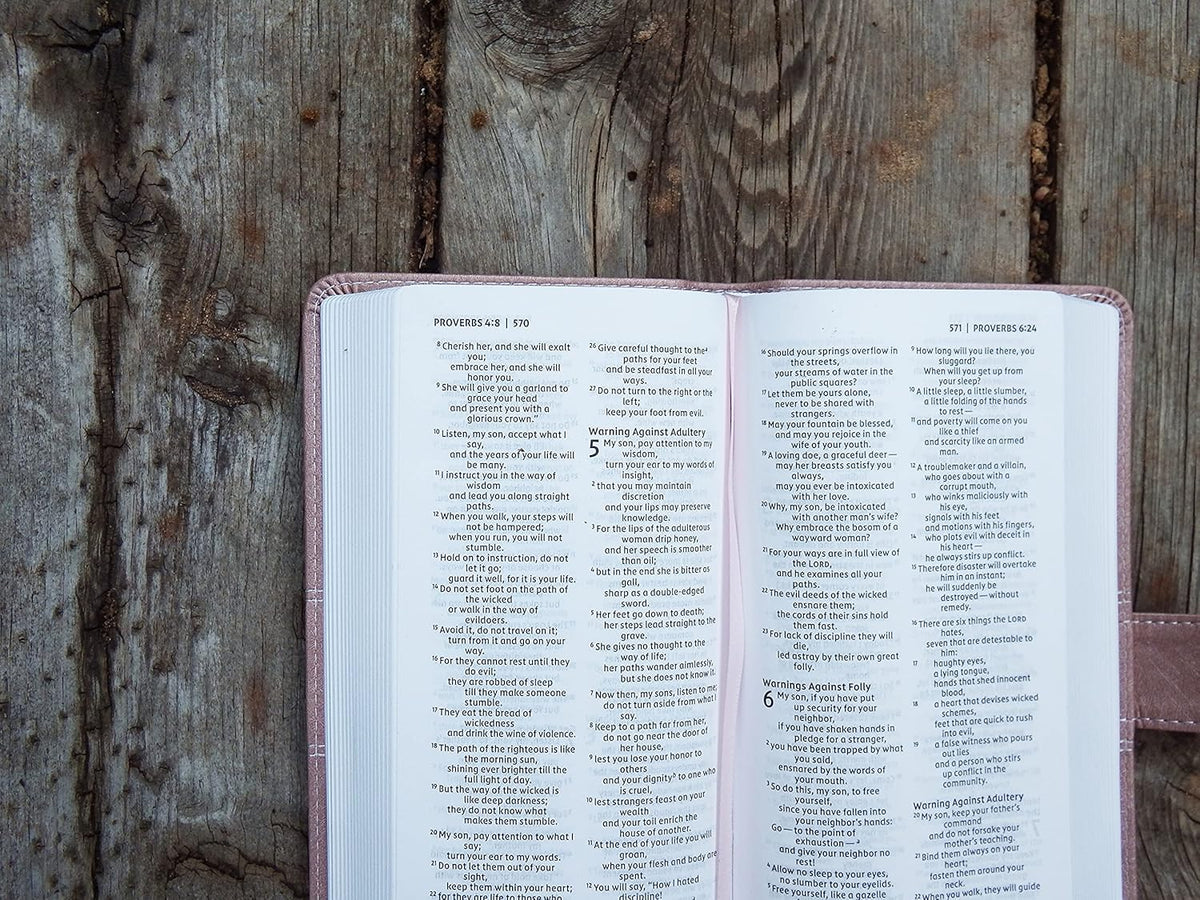 PROVERBS 4:8 | 570
8 Cherish her, and she will exalt
you;
embrace her, and she will
honor you.
9 She will give you a garland to
grace your head
and present you with a
glorious crown.”
10 Listen, my son, accept what I
say,
and the years of your life will
be many.
11 I instruct you in the way of
wisdom
and lead you along straight
paths.
12 When you walk, your steps will
not be hampered;
when you run, you will not
stumble.
13 Hold on to instruction, do not
let it go;
guard it well, for it is your life.
14 Do not set foot on the path of
the wicked
or walk in the way of
evildoers.
15 Avoid it, do not travel on it;
turn from it and go on your
way.
16 For they cannot rest until they
do evil;
they are robbed of sleep
till they make someone
stumble.
17 They eat the bread of
wickedness
and drink the wine of violence.
18 The path of the righteous is like
the morning sun,
shining ever brighter till the
full light of day.
19 But the way of the wicked is
like deep darkness;
they do not know what
makes them stumble.
20 My son, pay attention to what I
say;
turn your ear to my words.
21 Do not let them out of your
sight,
keep them within your heart;
22 for they are life to those who
26 Give careful thought to the a
paths for your feet
and be steadfast in all your
ways.
27 Do not turn to the right or the
left;
keep your foot from evil.
Warning Against Adultery
5 My son, pay attention to my
wisdom,
turn your ear to my words of
insight,
2 that you may maintain
discretion
and your lips may preserve
knowledge.
3 For the lips of the adulterous
woman drip honey,
and her speech is smoother
than oil;
4 but in the end she is bitter as
gall,
sharp as a double-edged
sword.
5 Her feet go down to death;
her steps lead straight to the
grave.
6 She gives no thought to the
way of life;
her paths wander aimlessly,
but she does not know it.
7 Now then, my sons, listen to me;
do not turn aside from what I
say.
8 Keep to a path far from her,
do not go near the door of
her house,
9 lest you lose your honor to
others
and your dignity b to one who
is cruel,
10 lest strangers feast on your
wealth
and your toil enrich the
house of another.
11 At the end of your life you will
groan,
when your flesh and body are
spent.
12 You will say, “How I hated
discipline!
571 | PROVERBS 6:24
16 Should your springs overflow in
the streets,
your streams of water in the
public squares?
17 Let them be yours alone,
never to be shared with
strangers.
18 May your fountain be blessed,
and may you rejoice in the
wife of your youth.
19 A loving doe, a graceful deer—
may her breasts satisfy you
always,
may you ever be intoxicated
with her love.
20 Why, my son, be intoxicated
with another man’s wife?
Why embrace the bosom of a
wayward woman?
21 For your ways are in full view of
the LORD,
and he examines all your
paths.
22 The evil deeds of the wicked
ensnare them;
the cords of their sins hold
them fast.
23 For lack of discipline they will
die,
led astray by their own great
folly.
Warnings Against Folly
6 My son, if you have put
up security for your
neighbor,
if you have shaken hands in
pledge for a stranger,
2 you have been trapped by what
you said,
ensnared by the words of
your mouth.
3 So do this, my son, to free
yourself,
since you have fallen into
your neighbor’s hands:
Go—to the point of
exhaustion— a
and give your neighbor no
rest!
4 Allow no sleep to your eyes,
no slumber to your eyelids.
5 Free yourself, like a gazelle
9 How long will you lie there, you
sluggard?
When will you get up from
your sleep?
10 A little sleep, a little slumber,
a little folding of the hands
to rest—
11 and poverty will come on you
like a thief
and scarcity like an armed
man.
12 A troublemaker and a villain,
who goes about with a
corrupt mouth,
13 who winks maliciously with
his eye,
signals with his feet
and motions with his fingers,
14 who plots evil with deceit in
his heart—
he always stirs up conflict.
15 Therefore disaster will overtake
him in an instant;
he will suddenly be
destroyed—without
remedy.
16 There are six things the LORD
hates,
seven that are detestable to
him:
17 haughty eyes,
a lying tongue,
hands that shed innocent
blood,
18 a heart that devises wicked
schemes,
feet that are quick to rush
into evil,
19 a false witness who pours
out lies
and a person who stirs
up conflict in the
community.
Warning Against Adultery
20 My son, keep your father’s
command
and do not forsake your
mother’s teaching.
21 Bind them always on your
heart;
fasten them around your
neck.
22 When you walk, they will guide